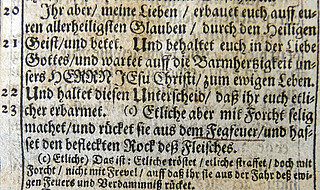 20 Jhr aber/ meine Lieben / erbauet euch auff eu-
ren allerheiligsten Glauben / durch den Heiligen
21 Geist/und betet. Und behaltet euch in der Liebe
Gottes/und wartet auff die Barmhertzigkeit un-
sers HERRN JEsu Christi/ zum ewigen Leben.
22 Und haltet diesen Unterscheid/ daß ihr euch etli-
23 cher erbarmet. (c) Etliche aber mit Forcht selig
machet/und rücket sie aus dem Fegfeuer/und has-
set den befleckten Rock deß Fleisches.
(c) Etliche) Das ist: Etliche tröstet / etliche straffet / doch mit
Forcht / nicht mit Frevel / auff daß ihr sie aus der Fahr deß ewi-
gen Feuers und Verdamniß rücket.